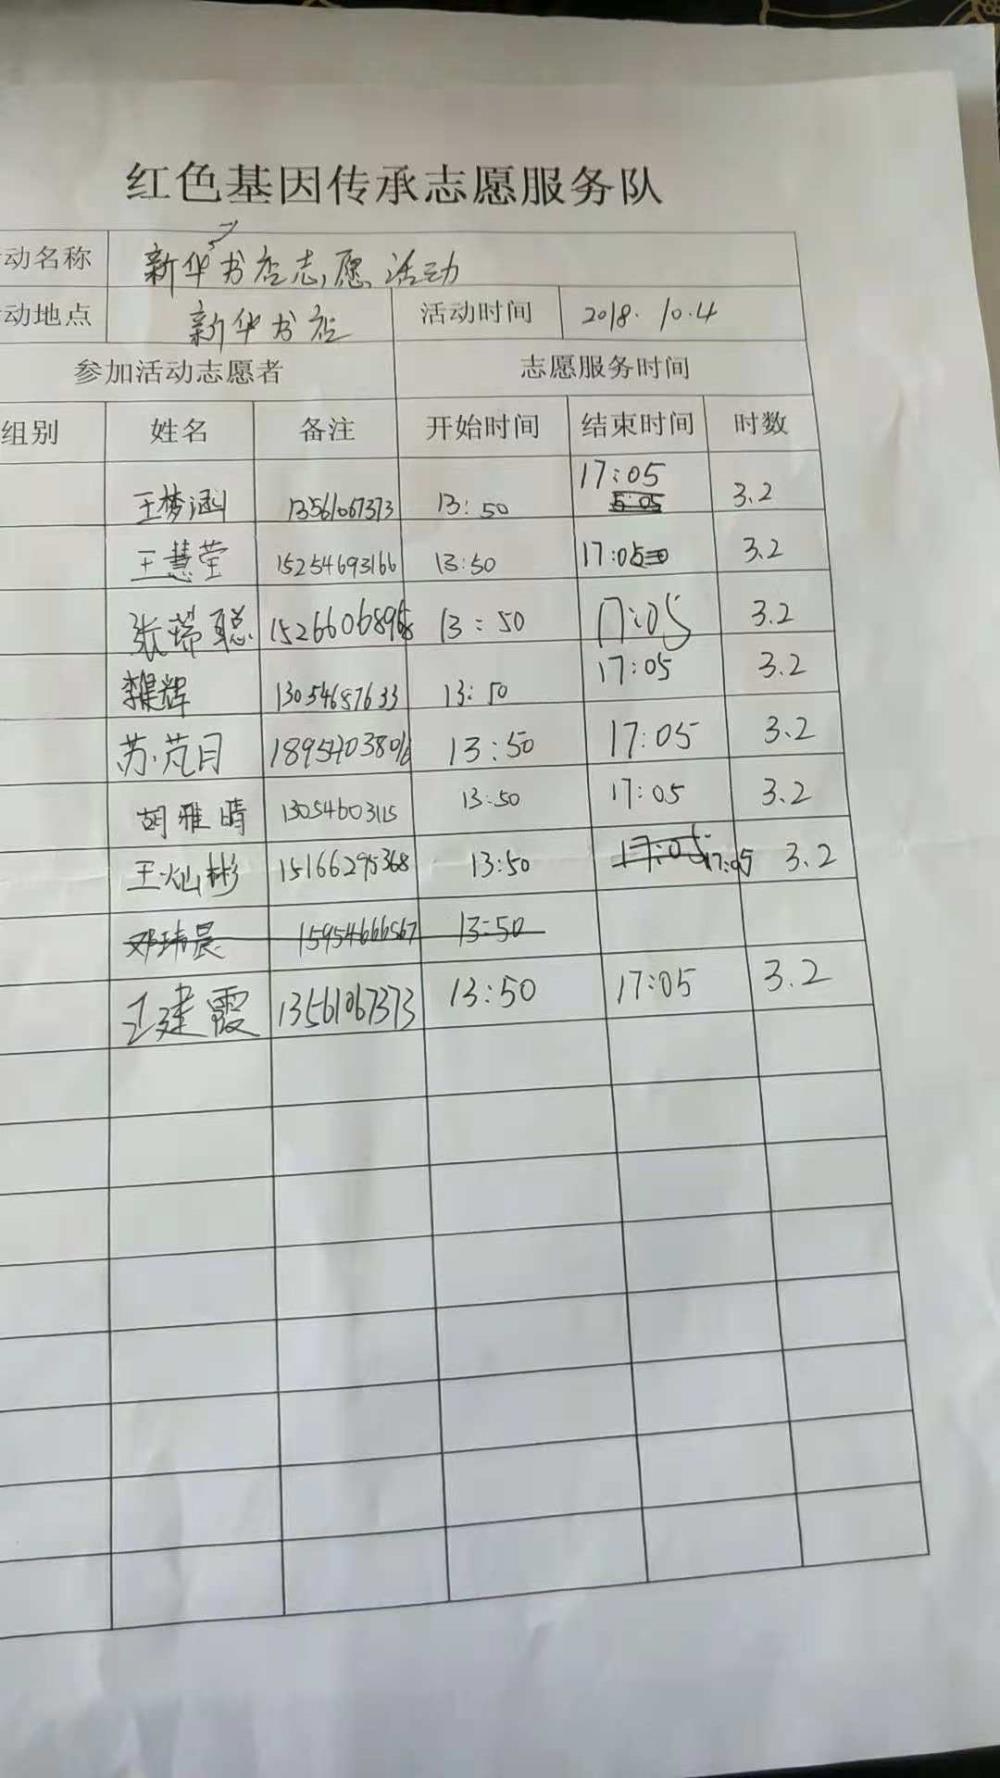 红色基因传承志愿服务队
动名称 新华书店志愿活动
动地点 新华书店 活动时间 2018.10.4
参加活动志愿者 志愿服务时间
组别 姓名 备注 开始时间 结束时间 时数
王梦涵 13561067373 13:50 17:05 3.2
王慧莹 15254693166 13:50 17:05 3.2
张瑞聪 13:50 17:05 3.2
辉 13054687633 13:50 17:05 3.2
苏芃月 13:50 17:05 3.2
胡雅晴 13054603115 13:50 17:05 3.2
王灿彬 15166295368 13:50 17:05 17:05 3.2
邓玮晨 15954666567 13:50
王建霞 13561067373 13:50 17:05 3.2